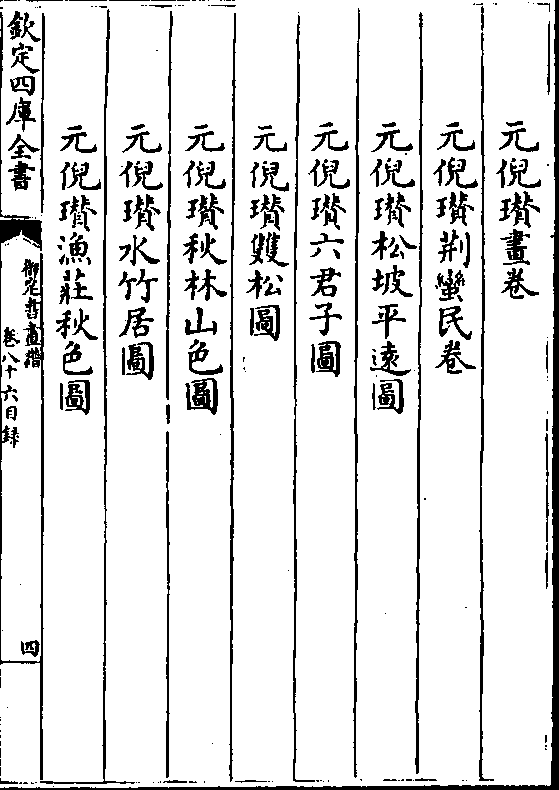 元倪瓚畫卷
元倪瓚荆蠻民卷
元倪瓚松坡平逺圖
元倪瓚六君子圖
元倪瓚雙松圖
元倪瓚秋林山色圖
元倪瓚水竹居圖
元倪瓚漁莊秋色圖
欽定四庫全書
御定書畫譜
卷八十六目録
四